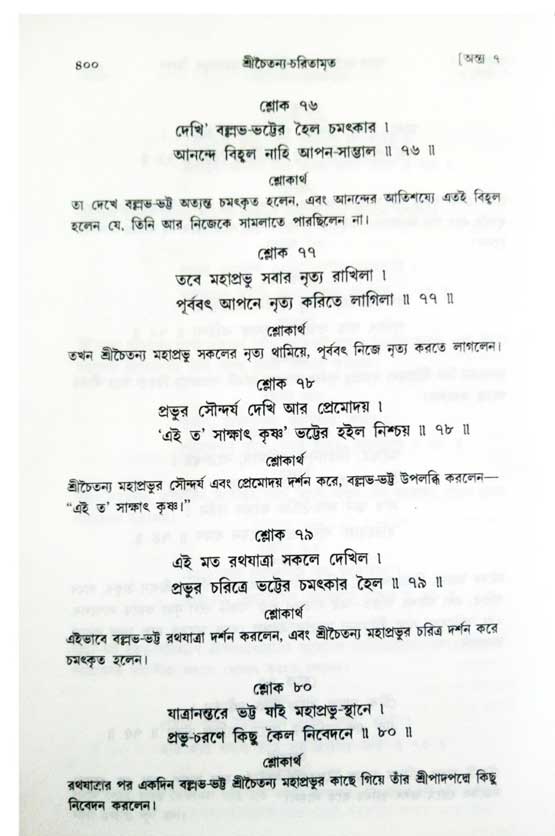 ৪০০ শ্রীচৈতন্য-চরিতামৃত [অন্ত্য ৭
শ্লোক ৭৬
দেখি' বল্লভ-ভট্টের হৈল চমৎকার ।
আনন্দে বিহ্বল নাহি আপন-সাম্ভাল ॥ ৭৬ ॥
শ্লোকার্থ
তা দেখে বল্লভ-ভট্ট অত্যন্ত চমৎকৃত হলেন, এবং আনন্দের আতিশয্যে এতই বিহ্বল
হলেন যে, তিনি আর নিজেকে সামলাতে পারছিলেন না।
শ্লোক ৭৭
তবে মহাপ্রভু সবার নৃত্য রাখিলা ।
পূর্ববৎ আপনে নৃত্য করিতে লাগিলা ॥ ৭৭ ॥
শ্লোকার্থ
তখন শ্রীচৈতন্য মহাপ্রভু সকলের নৃত্য থামিয়ে, পূর্ববৎ নিজে নৃত্য করতে লাগলেন।
শ্লোক ৭৮
প্রভুর সৌন্দর্য দেখি আর প্রেমোদয় ।
‘এই ত’ সাক্ষাৎ কৃষ্ণ’ ভট্টের হইল নিশ্চয় ॥ ৭৮ ॥
শ্লোকার্থ
শ্রীচৈতন্য মহাপ্রভুর সৌন্দর্য এবং প্রেমোদয় দর্শন করে, বল্লভ-ভট্ট উপলব্ধি করলেন—
“এই ত’ সাক্ষাৎ কৃষ্ণ।”
শ্লোক ৭৯
এই মত রথযাত্রা সকলে দেখিল ।
প্রভুর চরিত্রে ভট্টের চমৎকার হৈল ॥ ৭৯ ॥
শ্লোকার্থ
এইভাবে বল্লভ-ভট্ট রথযাত্রা দর্শন করলেন, এবং শ্রীচৈতন্য মহাপ্রভুর চরিত্র দর্শন করে
চমৎকৃত হলেন।
শ্লোক ৮০
যাত্রানন্তরে ভট্ট যাই মহাপ্রভু-স্থানে ।
প্রভু-চরণে কিছু কৈল নিবেদনে ॥ ৮০ ॥
শ্লোকার্থ
রথযাত্রার পর একদিন বল্লভ-ভট্ট শ্রীচৈতন্য মহাপ্রভুর কাছে গিয়ে তাঁর শ্রীপাদপদ্মে কিছু
নিবেদন করলেন।